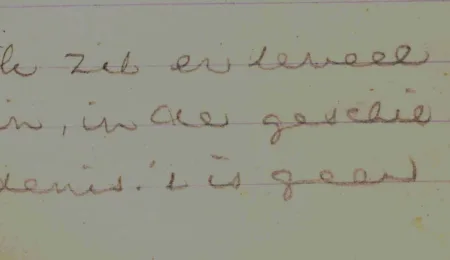 k zit er teveel
in, in de geschie
denis. 't is geen